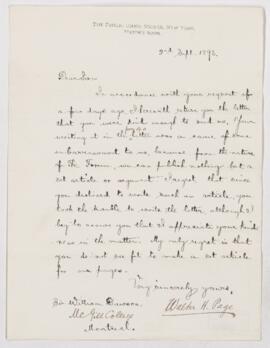 THE FORUM, UNION SQUARE, NEW YORK.
EDITOR'S ROOM.
2nd Sept. 1893.
Dear Sir:
In accordance with your request of
a few days ago I herewith return you the letter
that you were kind enough to send me. Your
writing it in the letter was a cause of some
embarrassment to me, because from the nature
of The Forum, we can publish nothing but a
set article or argument. I regret that since
you declined to make such an article, you
took the trouble to write the letter, although I
beg to assure you that I appreciate your kind-
ness in the matter. My only regret is that
you do not see fit to make a set article
for our pages.
Very sincerely yours,
Walter H. Page
Sir William Dawson,
McGill College
Montreal.